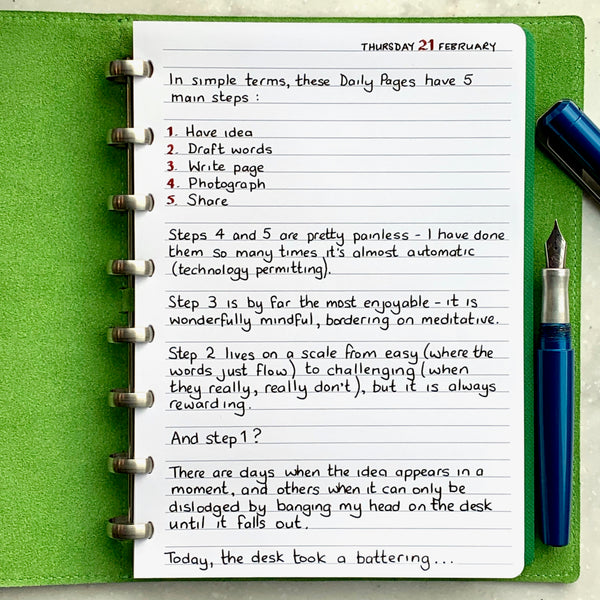 THURSDAY 21 FEBRUARY
In simple terms, these Daily Pages have 5
main steps :
1. Have idea
2. Draft words
3. Write page
4. Photograph
5. Share
Steps 4 and 5 are pretty painless - I have done
them so many times it's almost automatic
(technology permitting).
Step 3 is by far the most enjoyable - it is
wonderfully mindful, bordering on meditative.
Step 2 lives on a scale from easy (where the
words just flow) to challenging (when
they really, really don't), but it is always
rewarding.
And step 1?
There are days when the idea appears in a
moment, and others when it can only be
dislodged by banging my head on the desk
until it falls out.
Today, the desk took a battering...